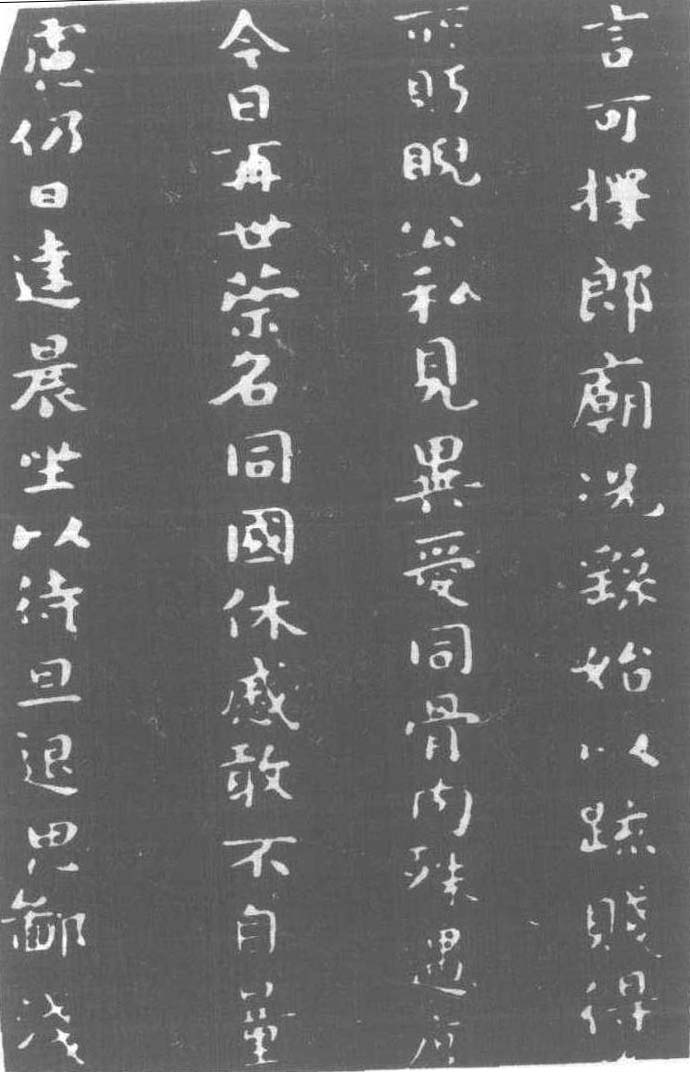 言可擇郎廟況繇始以踈賤得
所盱睨公私見異愛同骨肉殊遇厚
今日再世榮名同國休慼敢不自量
慮仍日達晨坐以待旦退思鄙淺